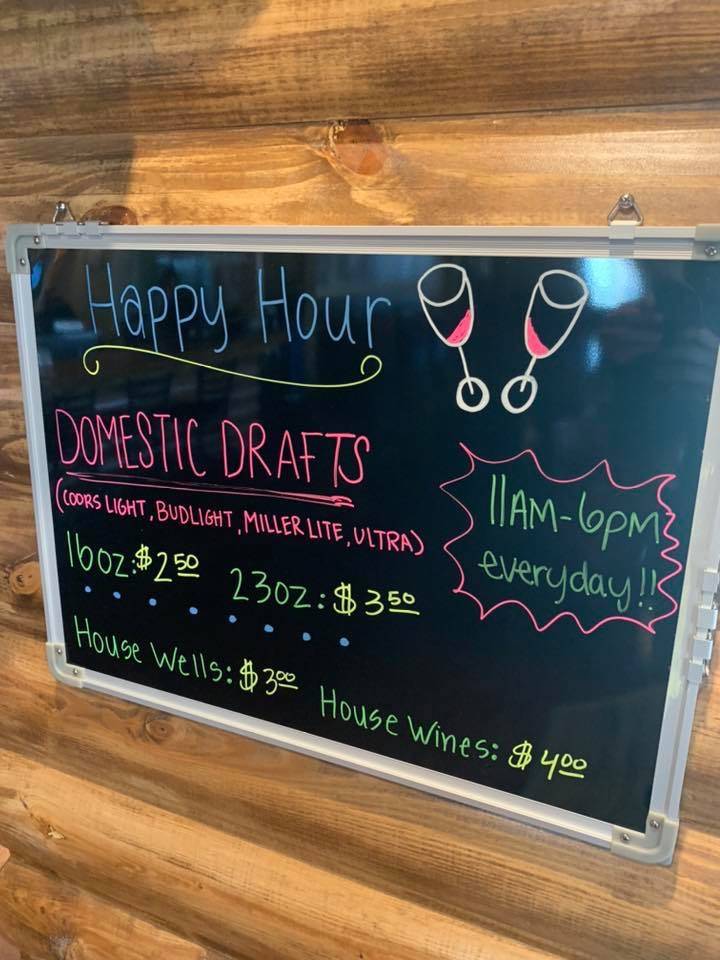 Happy Hour
DOMESTIC DRAFTS
(COORS LIGHT, BUDLIGHT, MILLER LITE, ULTRA)
16oz: $2 50 23oz: $3 50
House Wells: $3 00 House Wines: $4 00
11AM-6PM
everyday!!